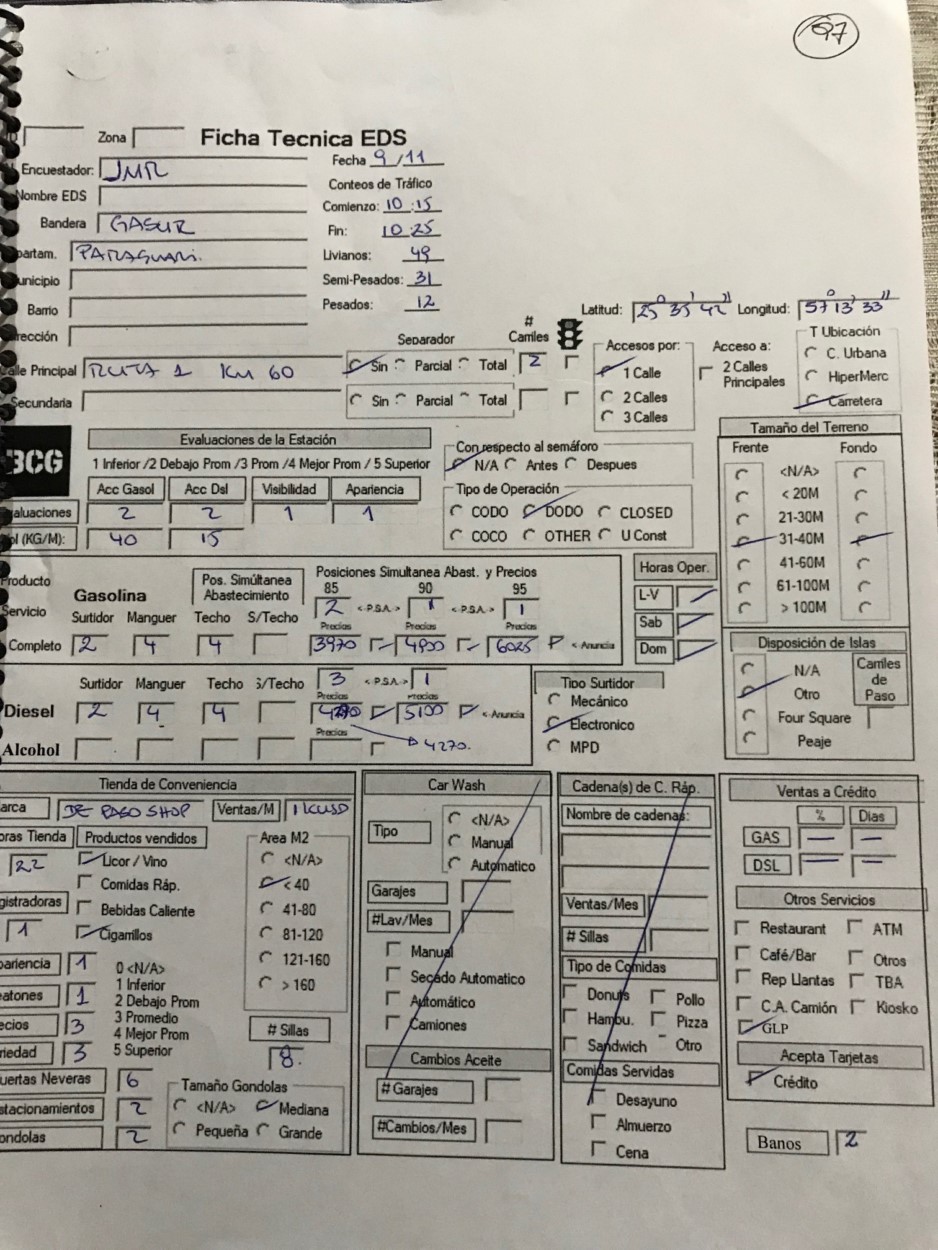 97
Zona
Ficha Tecnica EDS
Encuestador: JMR
Fecha 9/11
Nombre EDS
Conteos de Tráfico
Bandera GASUR
Comienzo: 10:15
Fin: 10:25
partam. PARAGUARI.
Livianos: 49
unicipio
Semi-Pesados: 31
Barrio
Pesados: 12
rección
Latitud: 25° 35' 42" Longitud: 57° 13' 33"
Separador # Carriles
Calle Principal RUTA 1 KM 60
Sin Parcial Total 2
Secundaria
Sin Parcial Total
Accesos por:
1 Calle
2 Calles
3 Calles
Acceso a:
2 Calles
Principales
T Ubicación
C. Urbana
HiperMerc
Carretera
BCG
Evaluaciones de la Estación
1 Inferior /2 Debajo Prom /3 Prom /4 Mejor Prom / 5 Superior
Acc Gasol Acc Dsl Visibilidad Apariencia
aluaciones 2 2 1 1
ol (KG/M): 40 15
Con respecto al semáforo
N/A Antes Despues
Tipo de Operación
CODO DODO CLOSED
COCO OTHER U Const
Tamaño del Terreno
Frente Fondo
<N/A>
< 20M
21-30M
31-40M
41-60M
61-100M
> 100M
Producto
Servicio
Completo
Gasolina
Pos. Simúltanea
Abastecimiento
Posiciones Simultanea Abast. y Precios
85 90 95
2 <-P.S.A.-> 1 <-P.S.A.-> 1
Surtidor Manguer Techo S/Techo
Precios Precios Precios
2 4 4 3970 4900 6025 <-Anuncia
Horas Oper.
L-V
Sab
Dom
Diesel
Surtidor Manguer Techo S/Techo
3 <-P.S.A.-> 1
Precios Precios
2 4 4 5100 <-Anuncia
Precios
4270.
Alcohol
Tipo Surtidor
Mecánico
Electronico
MPD
Disposición de Islas
N/A
Otro
Four Square
Peaje
Carriles
de
Paso
Tienda de Conveniencia
arca DE PASO SHOP Ventas/M 11KUSD
oras Tienda
22
gistradoras
1
Productos vendidos
Licor / Vino
Comidas Ráp.
Bebidas Caliente
Cigarrillos
Area M2
<N/A>
< 40
41-80
81-120
121-160
> 160
pariencia 1
eatones 1
ecios 3
riedad 3
0 <N/A>
1 Inferior
2 Debajo Prom
3 Promedio
4 Mejor Prom
5 Superior
# Sillas
8.
uertas Neveras 6
stacionamientos 2
ondolas 2
Tamaño Gondolas
<N/A> Mediana
Pequeña Grande
Car Wash
Tipo
<N/A>
Manual
Automatico
Garajes
#Lav/Mes
Manual
Secado Automatico
Automático
Camiones
Cambios Aceite
# Garajes
#Cambios/Mes
Cadena(s) de C. Ráp.
Nombre de cadenas:
Ventas/Mes
# Sillas
Tipo de Comidas
Donuts Pollo
Hambu. Pizza
Sandwich Otro
Comidas Servidas
Desayuno
Almuerzo
Cena
Ventas a Crédito
% Dias
GAS — —
DSL — —
Otros Servicios
Restaurant ATM
Café/Bar Otros
Rep Llantas TBA
C.A. Camión Kiosko
GLP
Acepta Tarjetas
Crédito
Banos 2